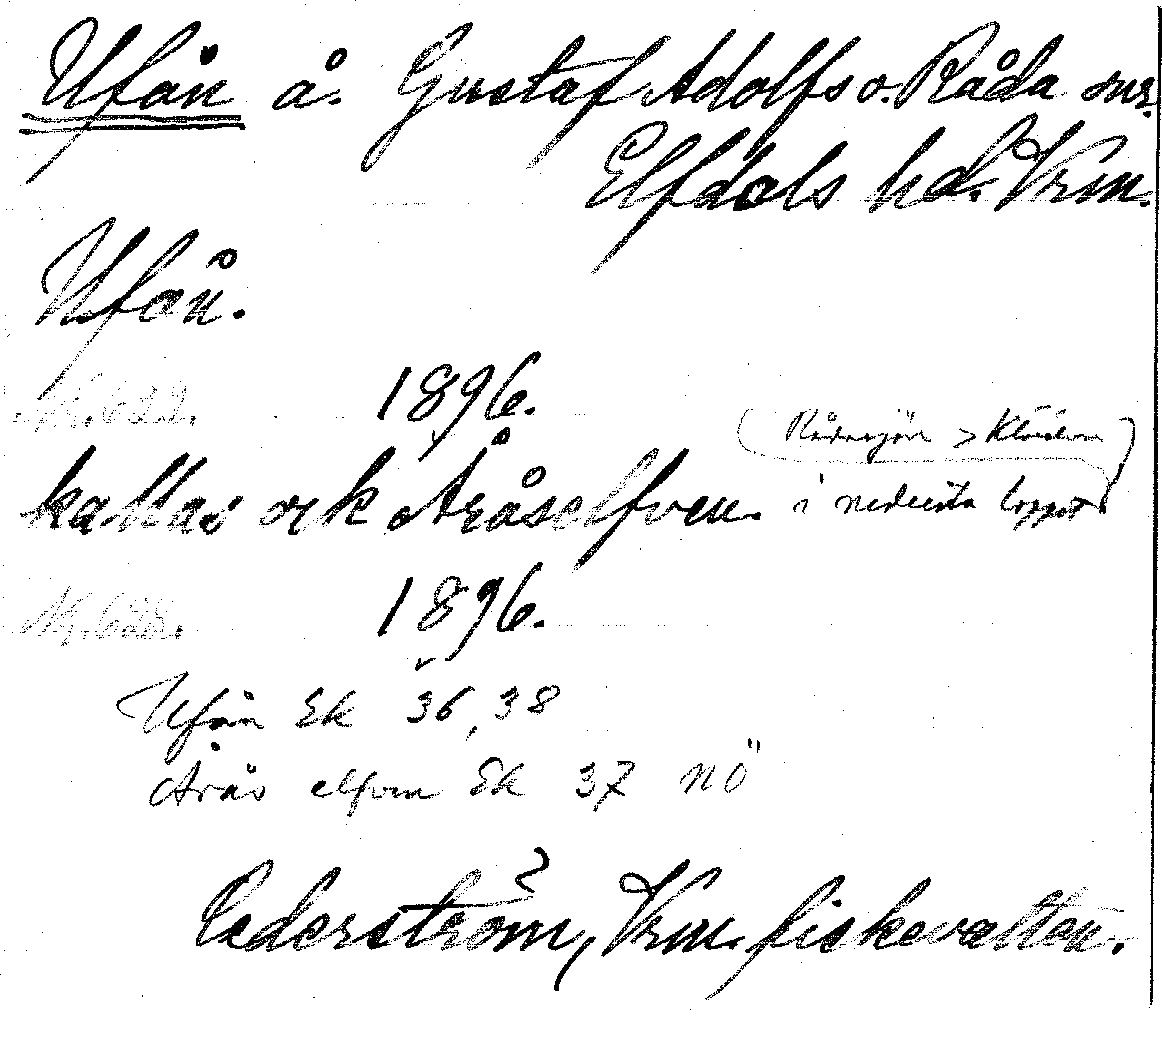 Ufån å. Gustaf Adolfs o. Råda snr.
Elfdals hd. Vrm.
Ufån.
Nr. 622. 1896.
(Rådasjön > Klarälven)
kallas ock Åråselfven. i nedersta loppet
Nr. 628. 1896.
Ufån Ek 36, 38
Årås elfven Ek 37 NÖ
Cederström, Vrm. fiskevatten.